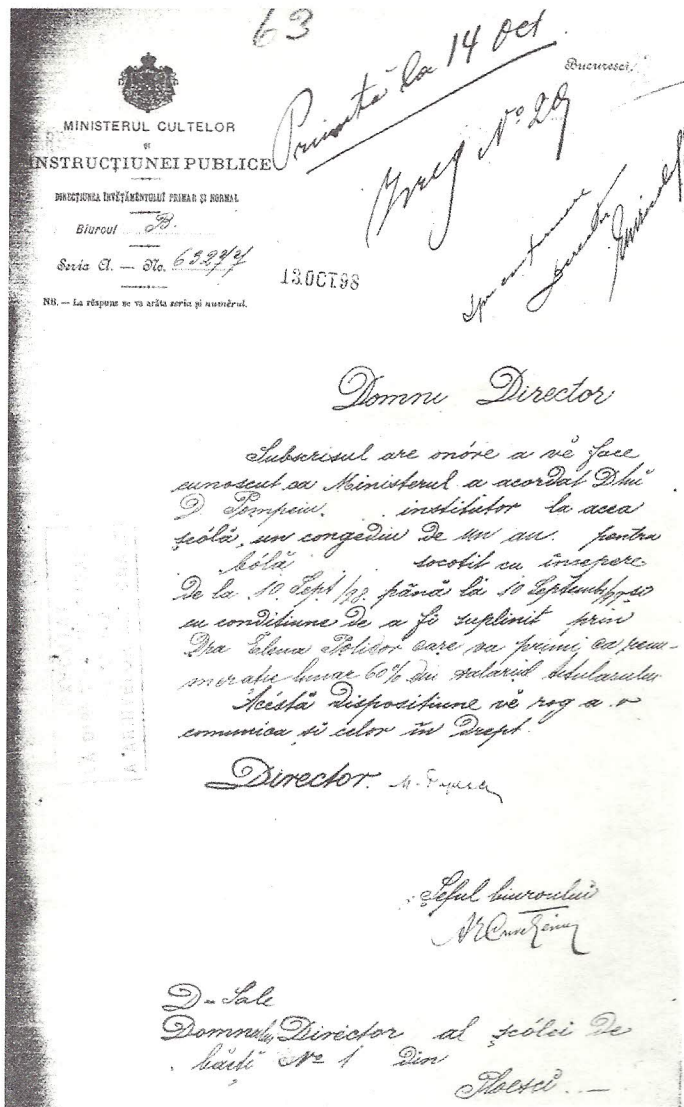 63
Primită la 14 Oct.
Bucuresci,
Inreg Nº 29
MINISTERUL CULTELOR
ȘI
INSTRUCȚIUNEI PUBLICE
DIRECȚIUNEA ÎNVĂȚĂMÊNTULUI PRIMAR ȘI NORMAL
Biuroul B.
Seria A. — No. 63277
13.OCT.98
NB. — La rěspuns se va arăta seria și numěrul.
Domnule Director
Subscrisul are onóre a vě face
cunoscut ca Ministerul a acordat Dlui
D Pompeiu. institutor la acea
șcólă, un congediu de un an. pentru
bólă socotit cu începere
de la 10 Sept/98 până la 10 Septemb/99 și
cu conditiune de a fi suplinit prin
Dra Elena Policlor care va primi, ca renu-
meratie lunar 60% din salariul titularului
Acéstă dispositiune vě rog a o
comunica și celor în drept.
Director. M. Popescu
Șeful biuroului
D-Sale
Domnului Director al șcólei de
băeți Nº 1 din
Ploesci. —